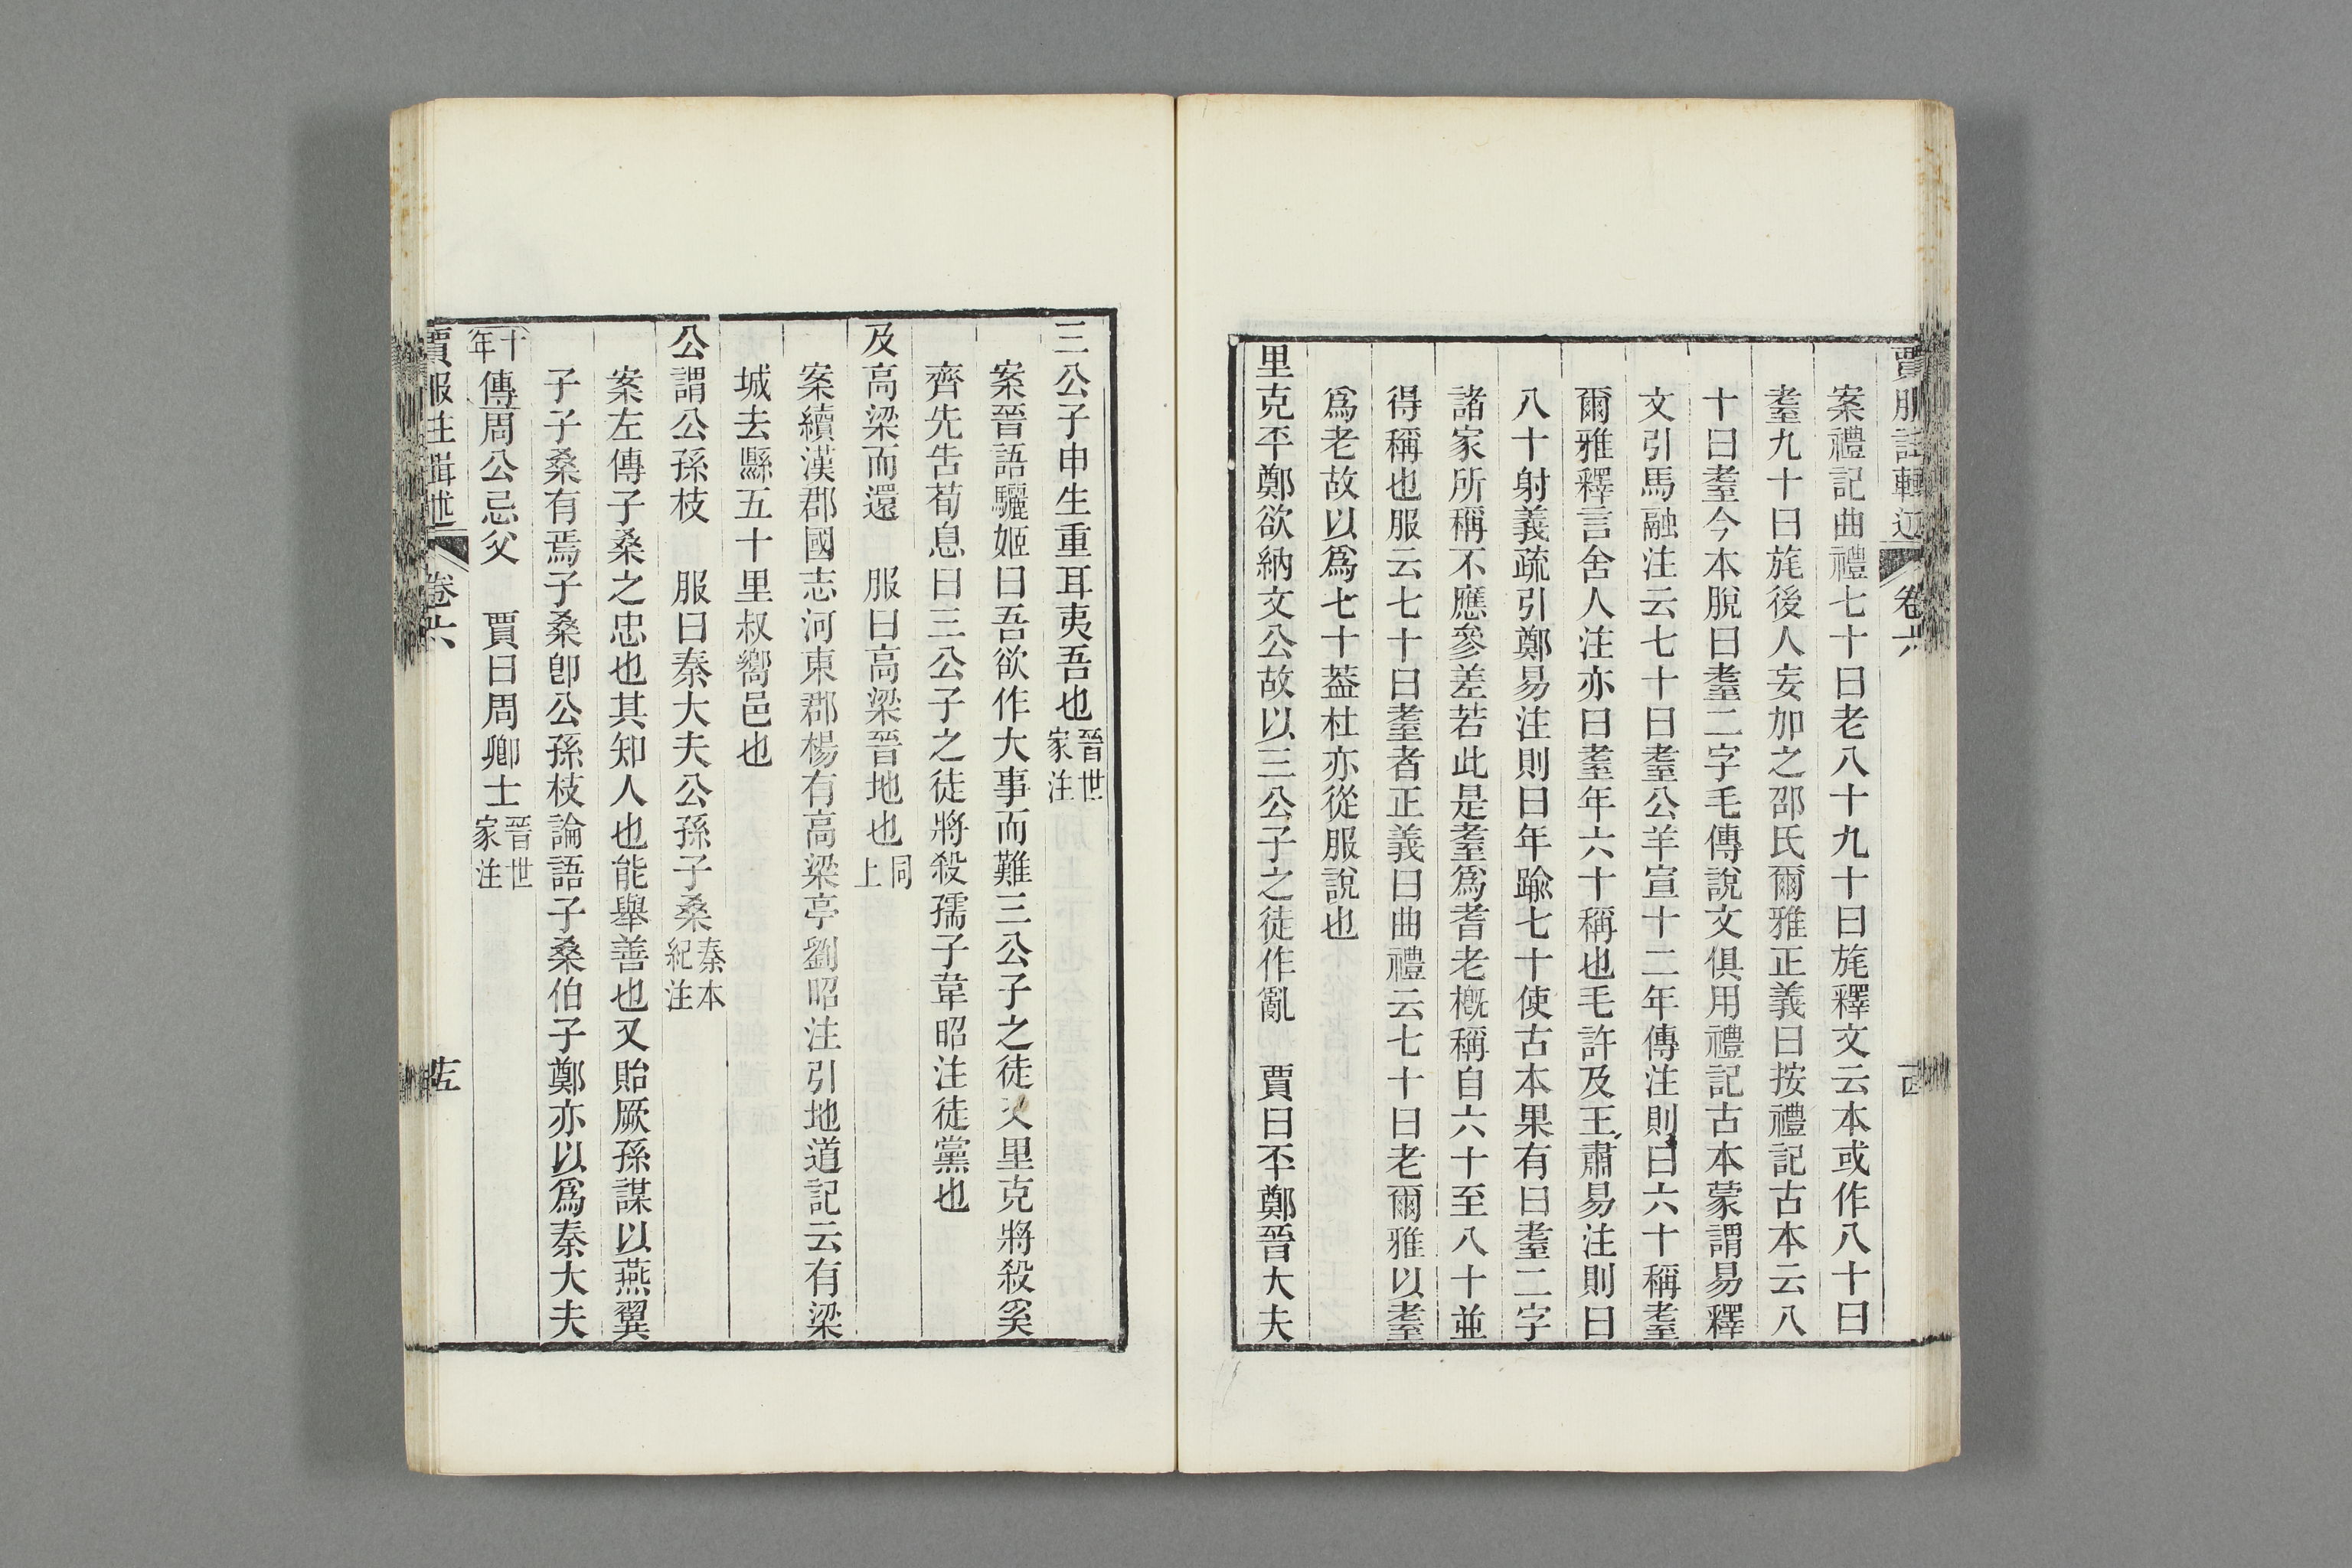 賈服註輯述 卷六
案禮記曲禮七十曰老八十九十曰旄釋文云本或作八十曰
耋九十曰旄後人妄加之邵氏爾雅正義曰按禮記古本云八
十曰耋今本脫曰耋二字毛傳說文俱用禮記古本蒙謂易釋
文引馬融注云七十曰耋公羊宣十二年傳注則曰六十稱耋
爾雅釋言舍人注亦曰耋年六十稱也毛許及王肅易注則曰
八十射義疏引鄭易注則曰年踰七十使古本果有曰耋二字
諸家所稱不應參差若此是耋爲耆老槪稱自六十至八十並
得稱也服云七十曰耋者正義曰曲禮云七十曰老爾雅以耋
爲老故以爲七十葢杜亦從服說也
里克㔻鄭欲納文公故以三公子之徒作亂　賈曰㔻鄭晉大夫
三公子申生重耳夷吾也晉世家注
案晉語驪姬曰吾欲作大事而難三公子之徒又里克將殺奚
齊先告荀息曰三公子之徒將殺孺子韋昭注徒黨也
及高梁而還　服曰高梁晉地也同上
案續漢郡國志河東郡楊有高梁亭劉昭注引地道記云有梁
城去縣五十里叔嚮邑也
公謂公孫枝　服曰秦大夫公孫子桑秦本紀注
案左傳子桑之忠也其知人也能舉善也又貽厥孫謀以燕翼
子子桑有焉子桑卽公孫枝論語子桑伯子鄭亦以爲秦大夫
十年傳周公忌父　賈曰周卿士晉世家注
賈服注輯述 卷六 十五